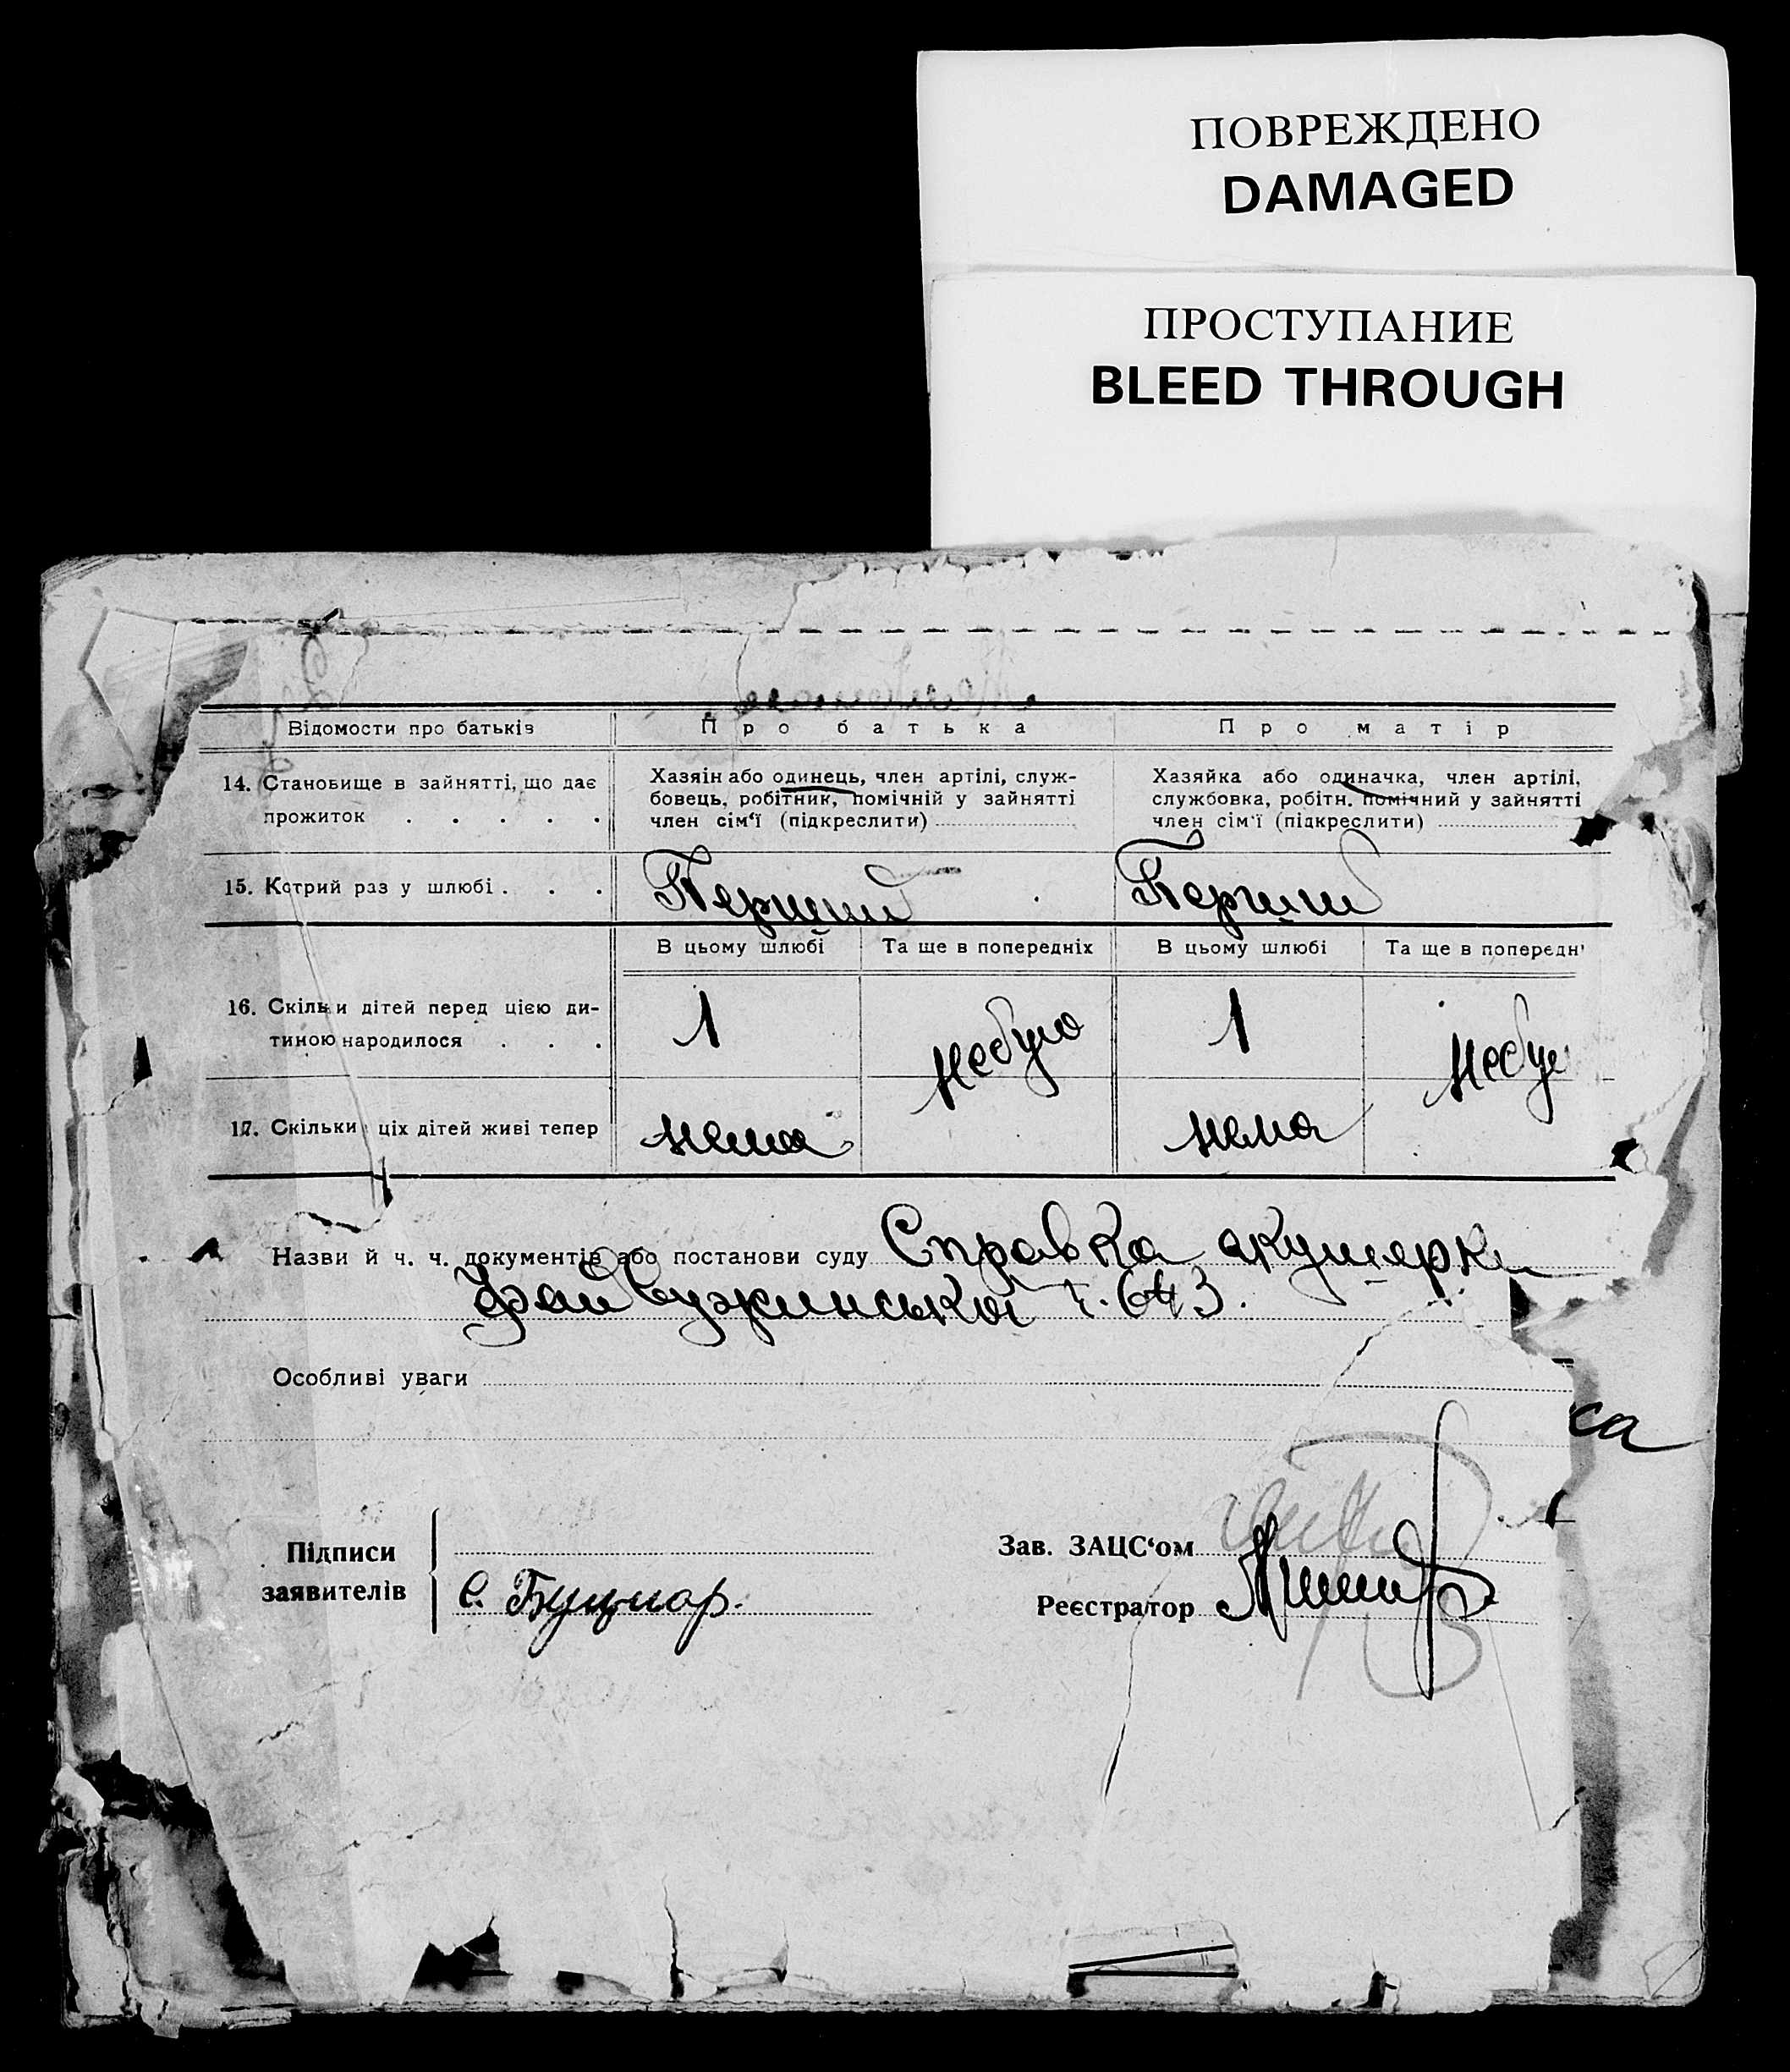 ПОВРЕЖДЕНО
DAMAGED
ПРОСТУПАНИЕ
BLEED THROUGH
Відомости про батьків Про батька Про матір
14. Становище в зайнятті, що дає прожиток . . . . .
Хазяїн або одинець, член артілі, служ-
бовець, робітник, помічній у зайнятті
член сім'ї (підкреслити)
Хазяйка або одиначка, член артілі,
службовка, робітн. помічний у зайнятті
член сім'ї (підкреслити)
15. Котрий раз у шлюбі . . . Перший Перший
В цьому шлюбі Та ще в попередніх В цьому шлюбі Та ще в попередн
16. Скільки дітей перед цією ди-
тиною народилося . . . 1 небуло 1 небул
17. Скільки ціх дітей живі тепер нема нема
Назви й ч. ч. документів або постанови суду Справка акушерки
ч. 643.
Особливі уваги
са
Підписи
заявителів
С.
Зав. ЗАЦС'ом
Реєстратор